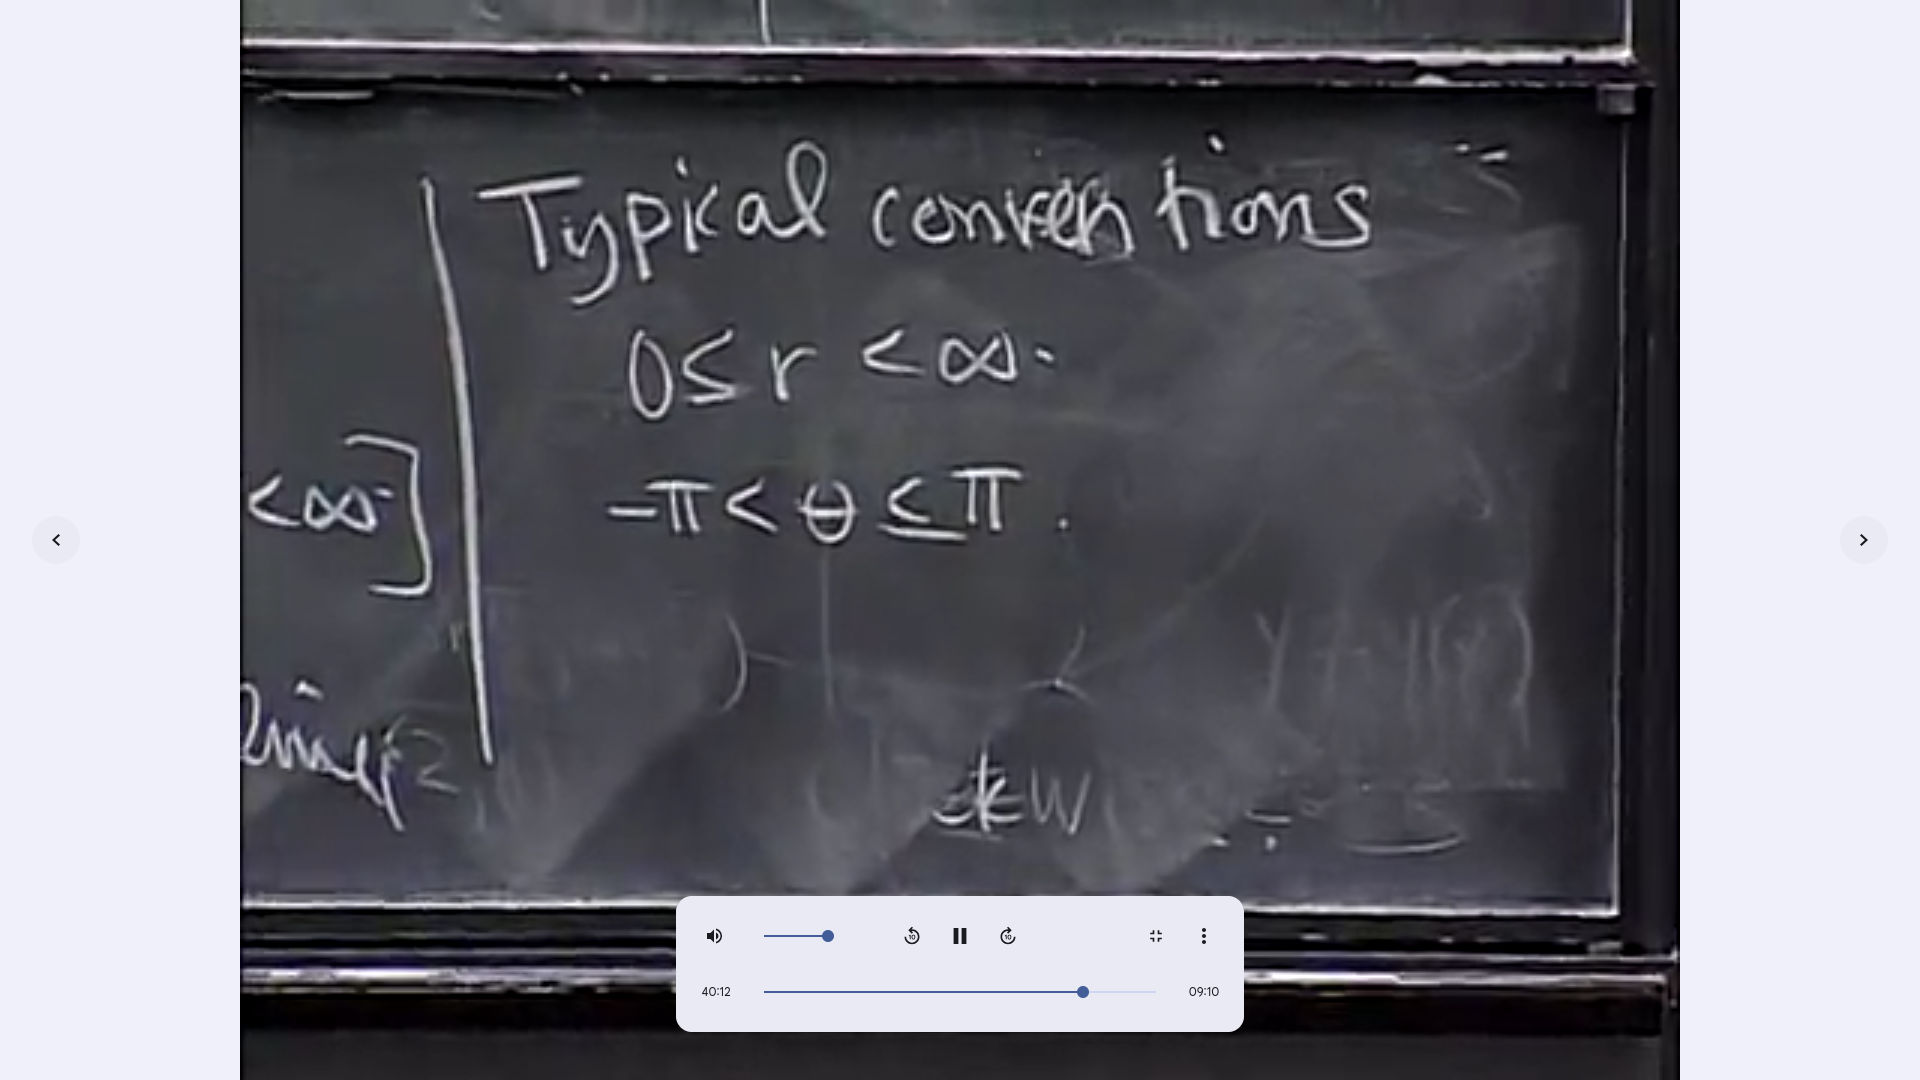 Typical conventions
0 ≤ r < ∞.
< ∞]
-π < θ ≤ π.
40:12
09:10